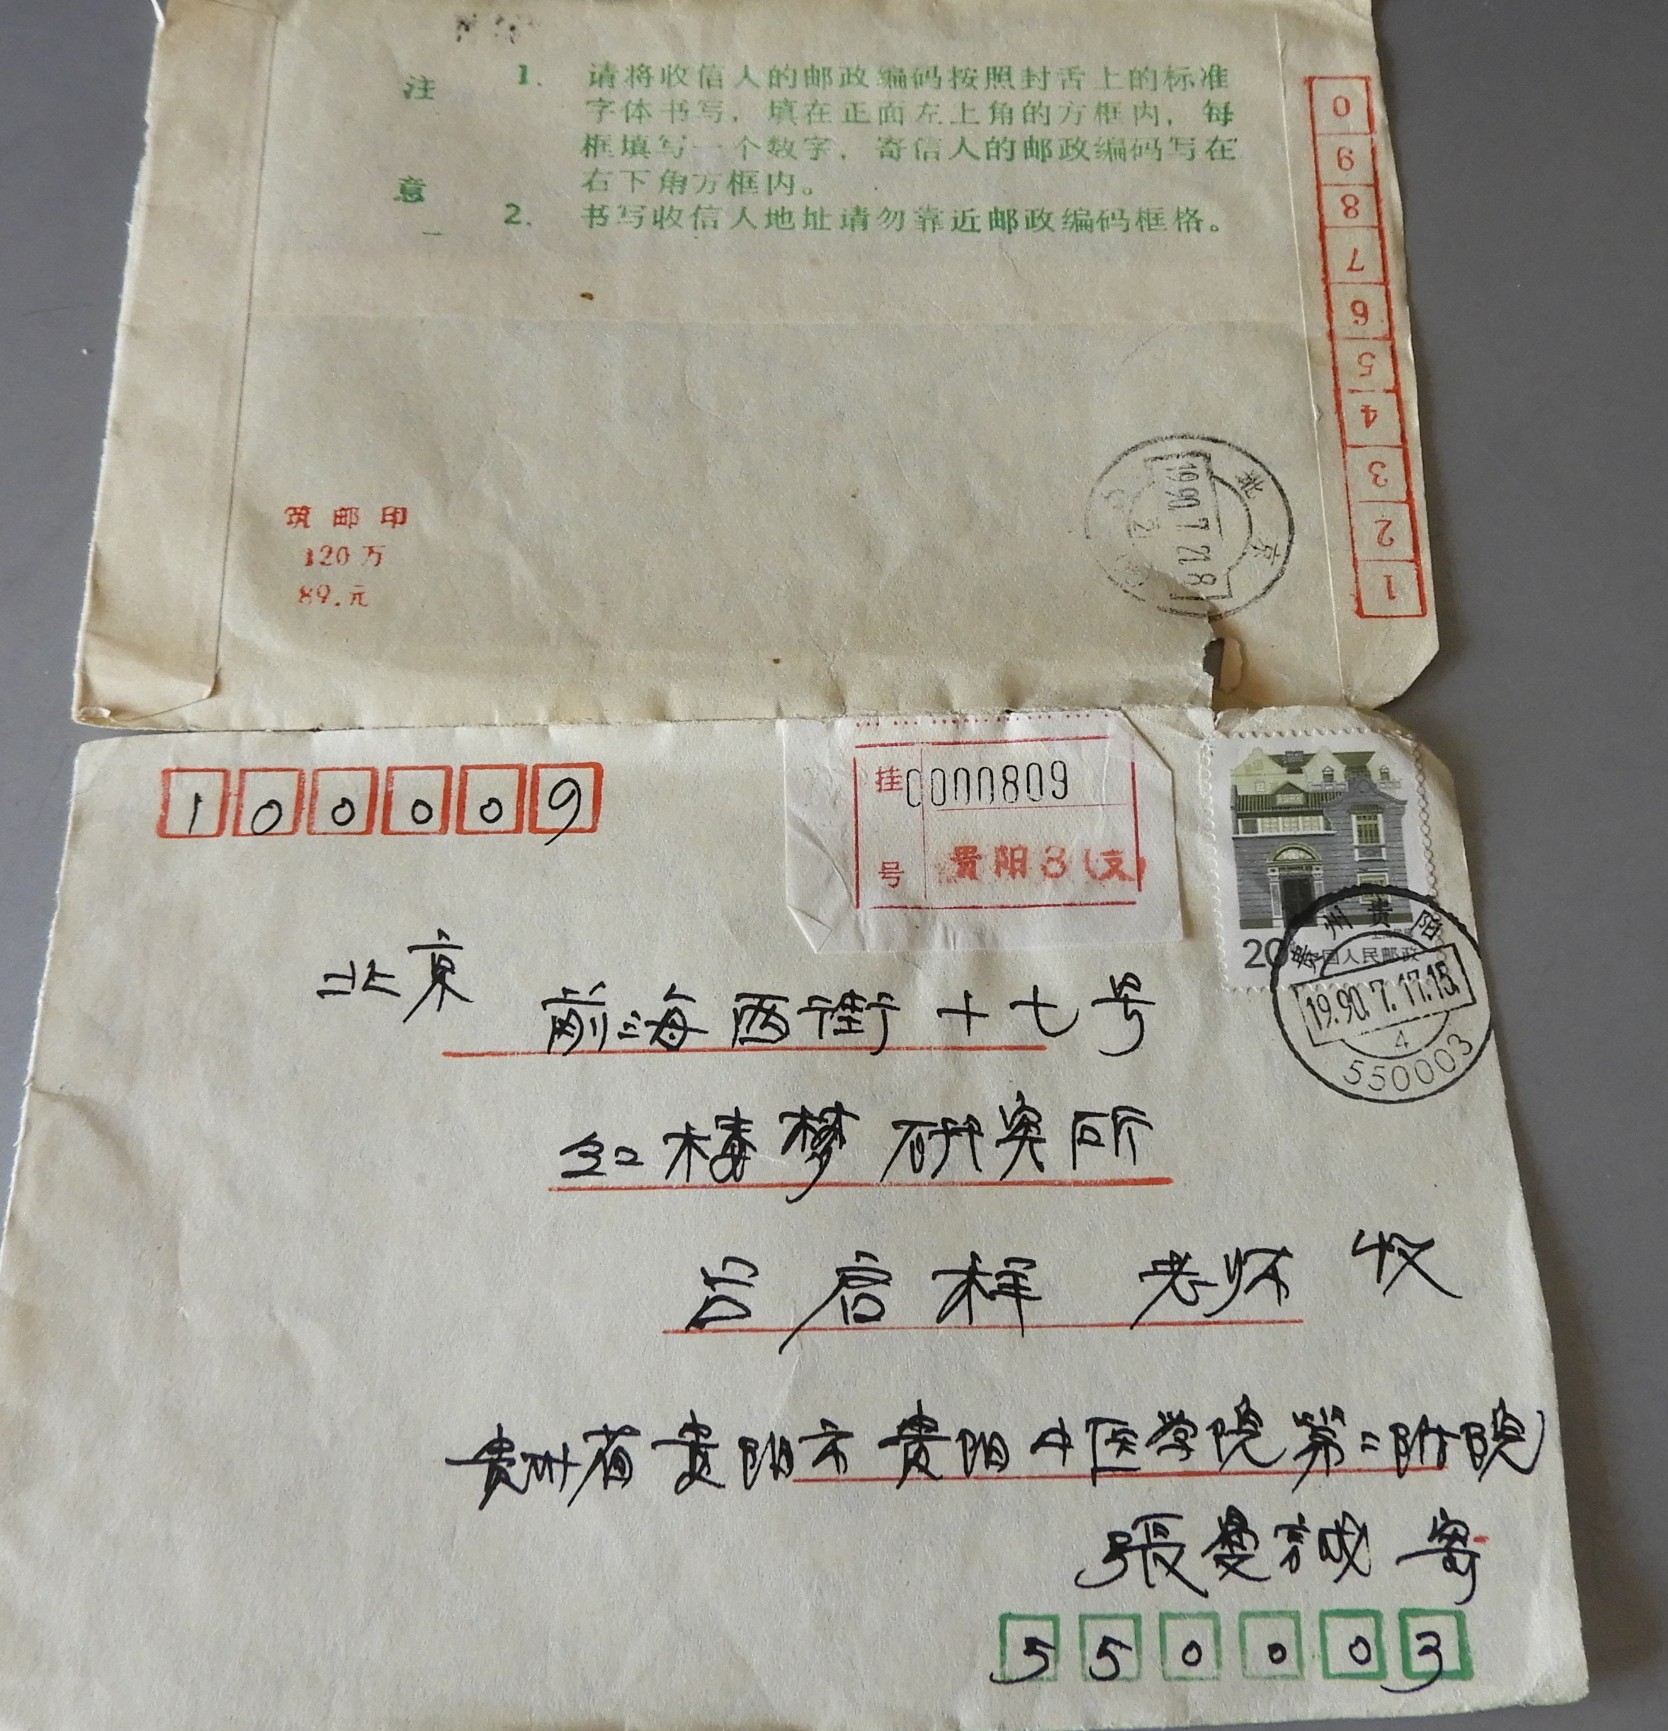 注意
1. 请将收信人的邮政编码按照封舌上的标准
字体书写，填在正面左上角的方框内，每
框填写一个数字，寄信人的邮政编码写在
右下角方框内。
2. 书写收信人地址请勿靠近邮政编码框格。
0 9 8 7 6 5 4 3 2 1
北京
1990.7.21.8
筑邮印
120万
89.元
100009
挂号
0000809
贵阳3(支)
20
中国人民邮政
贵州贵阳
19.90.7.17.15.
4
550003
北京
前海西街十七号
红楼梦研究所
吕启祥 老师 收
贵州省贵阳市贵阳中医学院第二附院
張曼誠 寄
550003